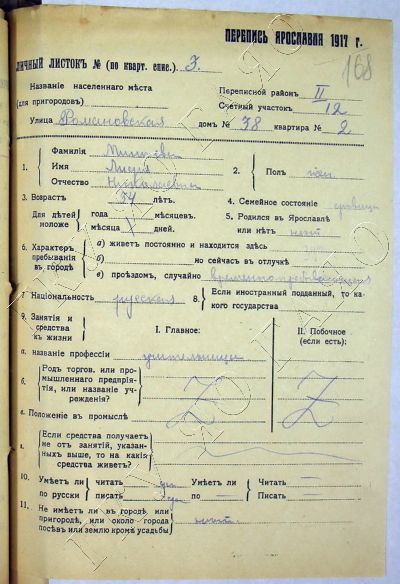 ПЕРЕПИСЬ ЯРОСЛАВЛЯ 1917 г.
168
ЛИЧНЫЙ ЛИСТОКЪ № (по кварт. спис.) 3.
Названіе населеннаго мѣста
(для пригородовъ)
Переписной районъ II
Счетный участокъ 12
Улица Романовская домъ № 78 квартира № 2
1. Фамилія
Имя Лидія
Отчество Николаевна
2. Полъ жен
3. Возрастъ 54 лѣтъ.
Для дѣтей моложе года месяцевъ.
месяца дней.
4. Семейное состояніе
5. Родился въ Ярославлѣ или нѣтъ нетъ
6. Характеръ пребыванія въ городѣ
а) живетъ постоянно и находится здѣсь
б) но сейчасъ въ отлучкѣ
в) проѣздомъ, случайно
7 Національность русская
8. Если иностранный подданный, то какого государства
9. Занятія и средства къ жизни
I. Главное:
II. Побочное (если есть):
а. названіе профессіи учительница
б. Родъ торгов. или промышленнаго предпріятія, или названіе учрежденія?
Z Z
в. Положеніе въ промыслѣ
г. Если средства получаетъ не отъ занятій, указанныхъ выше, то на какія средства живетъ?
10. Умѣетъ ли по русски читать да
писать да
Умѣетъ ли по — Читать —
Писать —
11. Не имѣетъ ли въ городѣ или пригородѣ, или около города посѣвъ или землю кромѣ усадьбы нетъ.